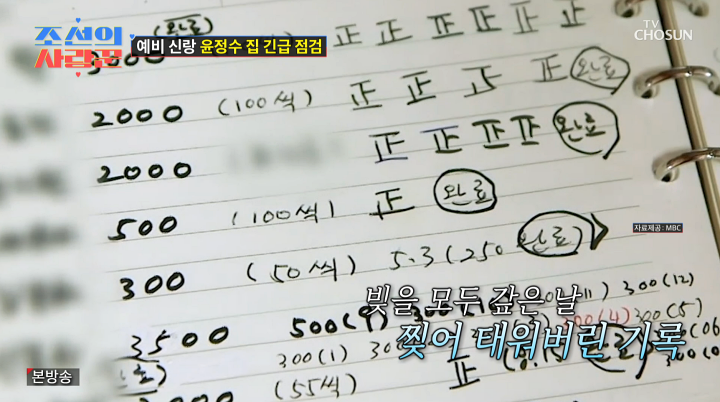 조선의 사랑꾼
예비 신랑 윤정수 집 긴급 점검
TV CHOSUN
완료
3000 正 正 正 正 正
2000 (100씩) 正 正 正 正 완료
2000 正 正 正 正 완료
500 (100씩) 正 완료
자료제공 : MBC
300 (50씩) 5.3 (250 완료)
빚을 모두 갚은 날
3500 500(9) 300 300(12)
찢어 태워버린 기록
300(1) 300(4) 300(5)
(55씩) 正
본방송